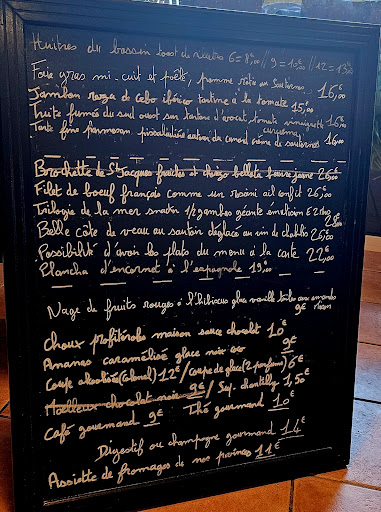 Huitres du bassin toast de rillettes 6 = 8,00 // 9 = 10€ // 12 = 13,00
Foie gras mi-cuit et poêlé, pomme rôtie au Sauternes .. 16,00
Jambon de Cebo ibérico tartine à la tomate 15,00
Truite fumée du sud ouest son tartare d'avocat tomate vinaigrette 16,00
Tarte fine parmesan pissaladière autour du canard 16,00
Brochette de St Jacques fraîches et chorizo bellota beurre jaune 26,00
Filet de boeuf français comme un rossini ail confit 26,00
Trilogie de la mer 1/2 gambas géante
Belle côte de veau au sautoir déglacé au vin de chablis 26,00
Possibilité d'avoir les plats du menu à la carte 22,00
Plancha d'encornet à l'espagnole 19,00
Nage de fruits rouges à l'hibiscus glace vanille tuiles aux amandes
9€ maison
Choux profiterole maison sauce chocolat 10€
Ananas caramélisé glace noix coco 9€
Coupe alcoolisée (Colonel) 12€ / Coupe de glace (2 parfums) 6€
Moelleux chocolat noir 9€ / Sup. chantilly 1,50€
Café gourmand 9€ Thé gourmand 10€
Digestif ou champagne gourmand 14€
Assiette de fromages de nos provinces 11€